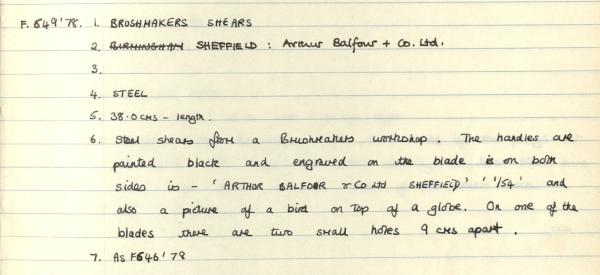 F.649'78. 1. BRUSHMAKERS SHEARS
2. BIRMINGHAM SHEFFIELD : Arthur Balfour + Co. Ltd.
3.
4. STEEL
5. 38.0 CMS - length.
6. Steel shears from a Brushmakers workshop. The handles are
painted black and engraved on the blade is on both
sides is - 'ARTHUR BALFOUR & Co Ltd SHEFFIELD' '1/54' and
also a picture of a bird on top of a globe. On one of the
blades there are two small holes 9 cms apart.
7. As F646'78